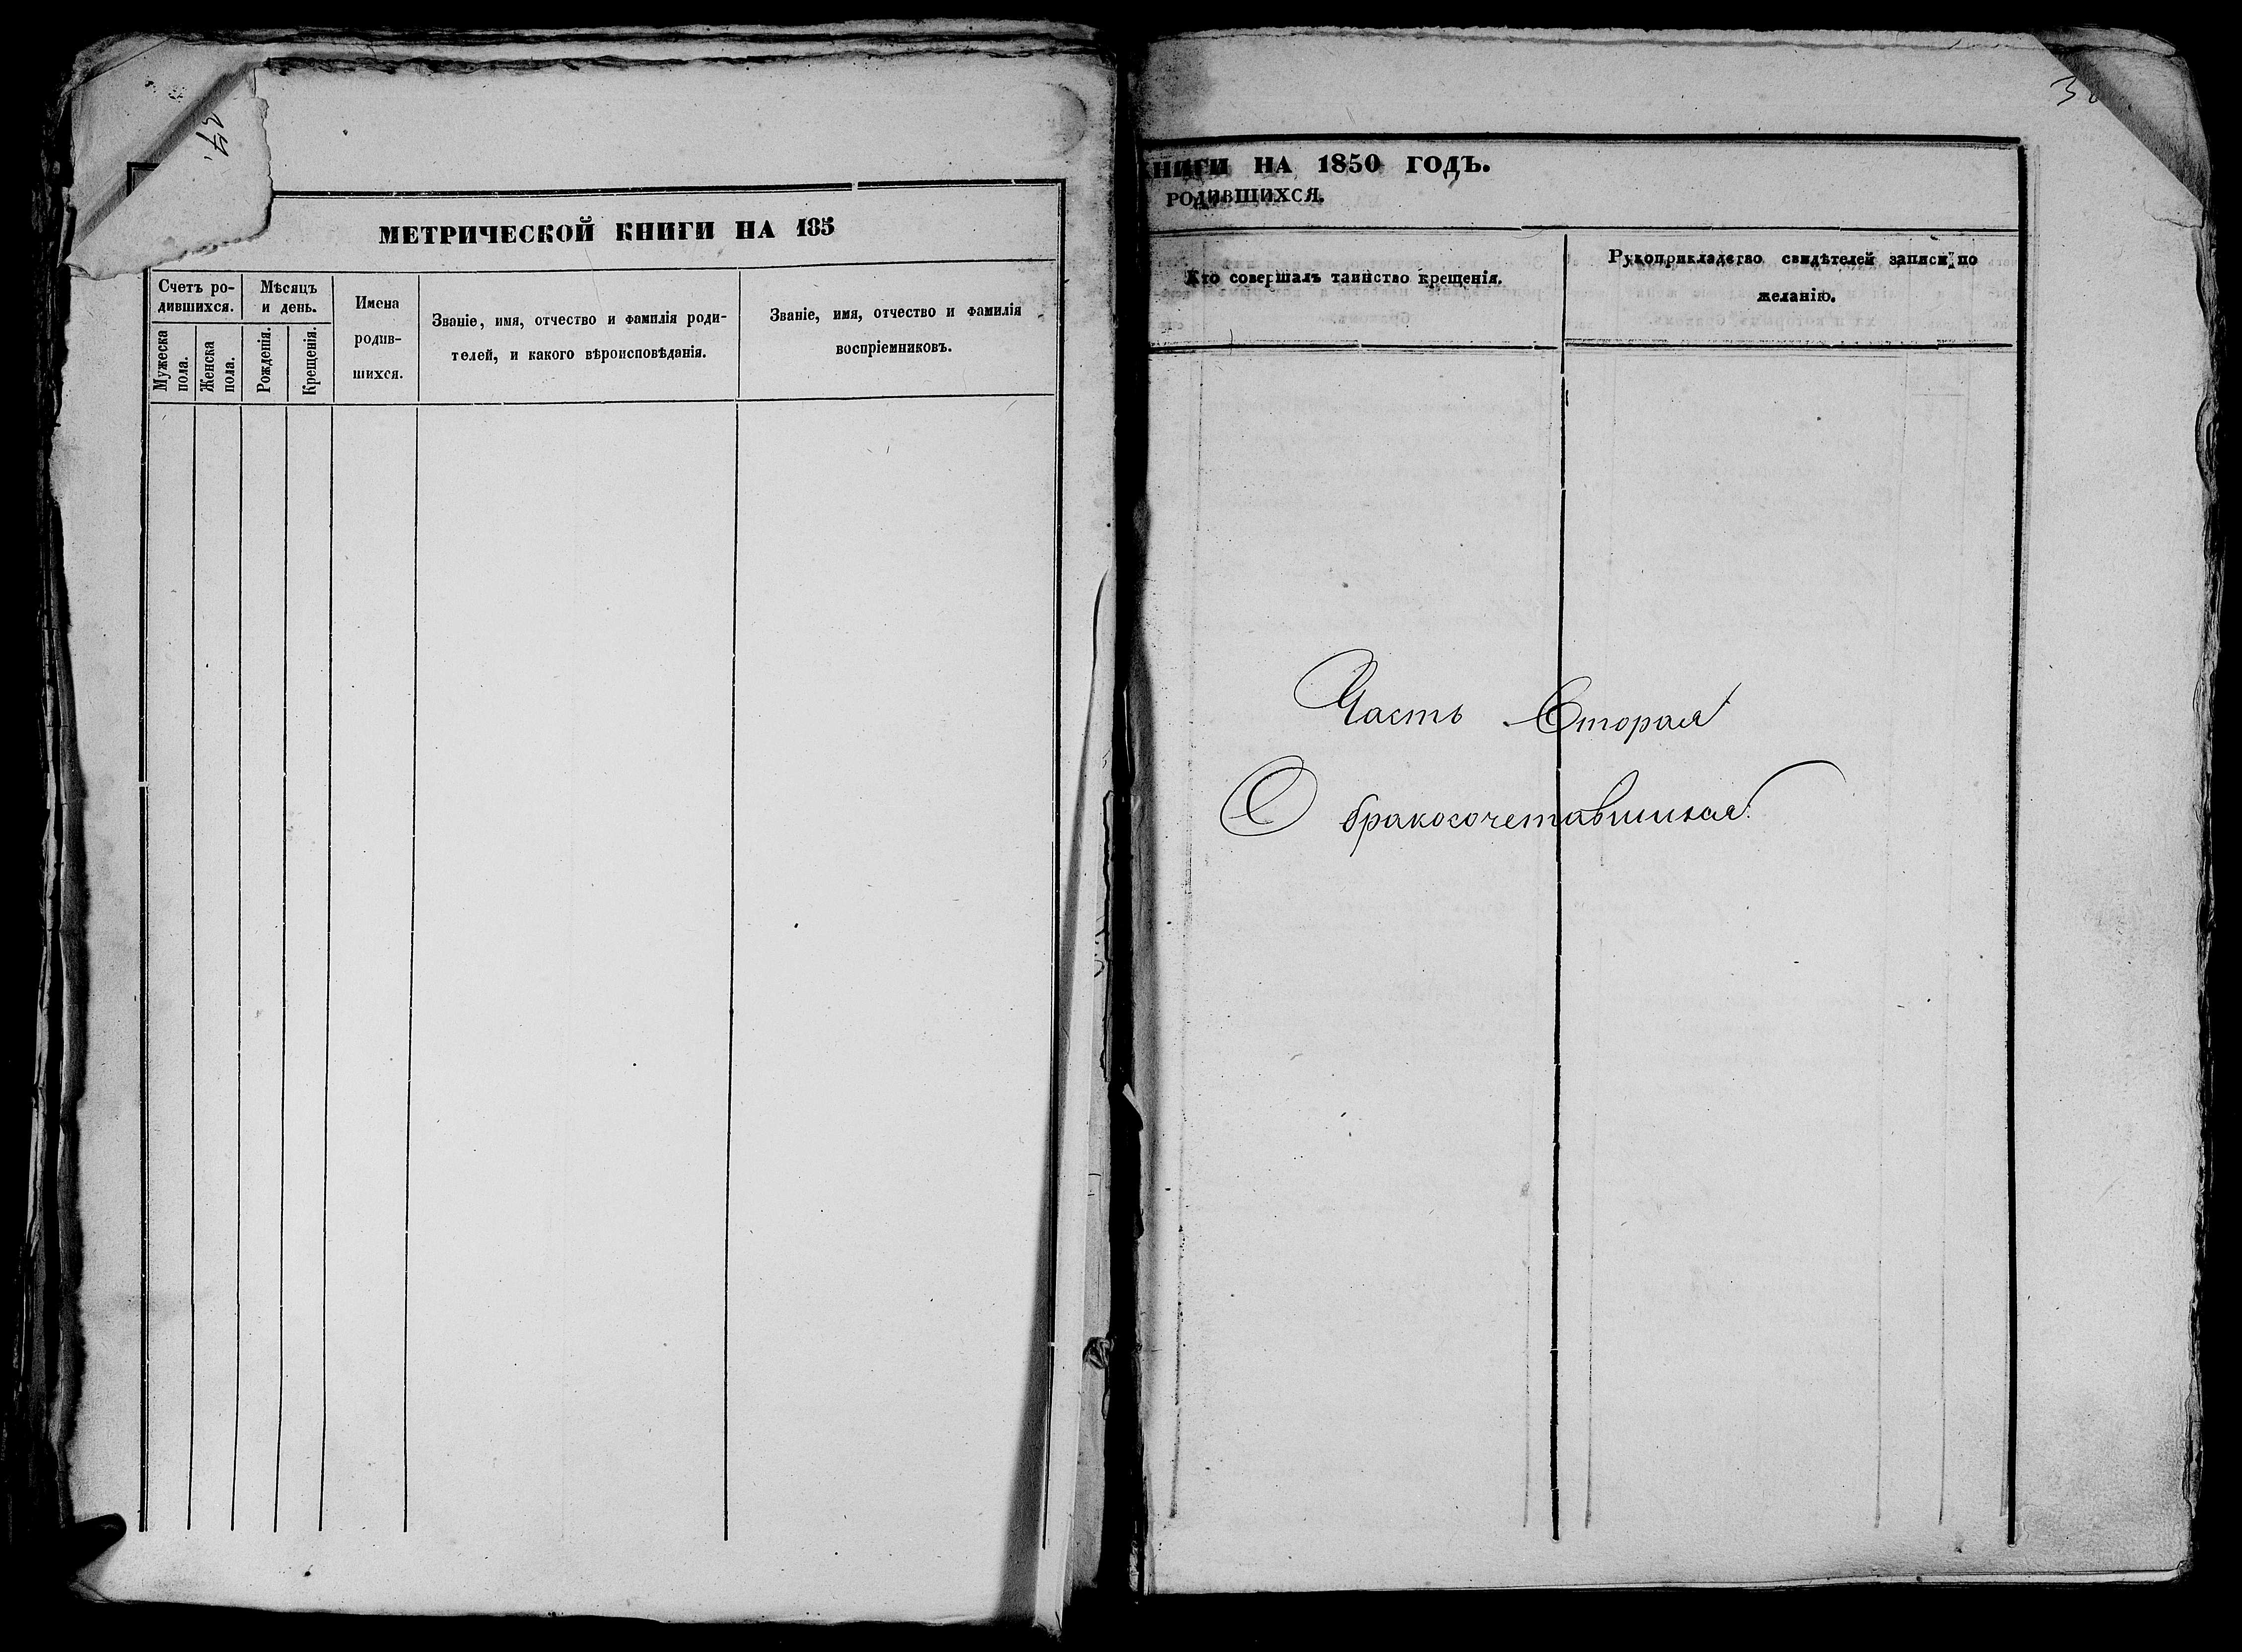 МЕТРИЧЕСКОЙ КНИГИ НА 185
Счетъ ро-
дившихся.
Мужеска
пола.
Женска
пола.
Мѣсяцъ
и день.
Рожденія.
Крещенія.
Имена
родив-
шихся.
Званіе, имя, отчество и фамилія роди-
телей, и какого вѣроисповѣданія.
Званіе, имя, отчество и фамилія
воспріемниковъ.
КНИГИ НА 1850 ГОДЪ.
РОДИВШИХСЯ.
Кто совершалъ таинство крещенія.
Рукоприкладство свидѣтелей записи по
желанію.
Часть Вторая
О бракосочетавшихся.